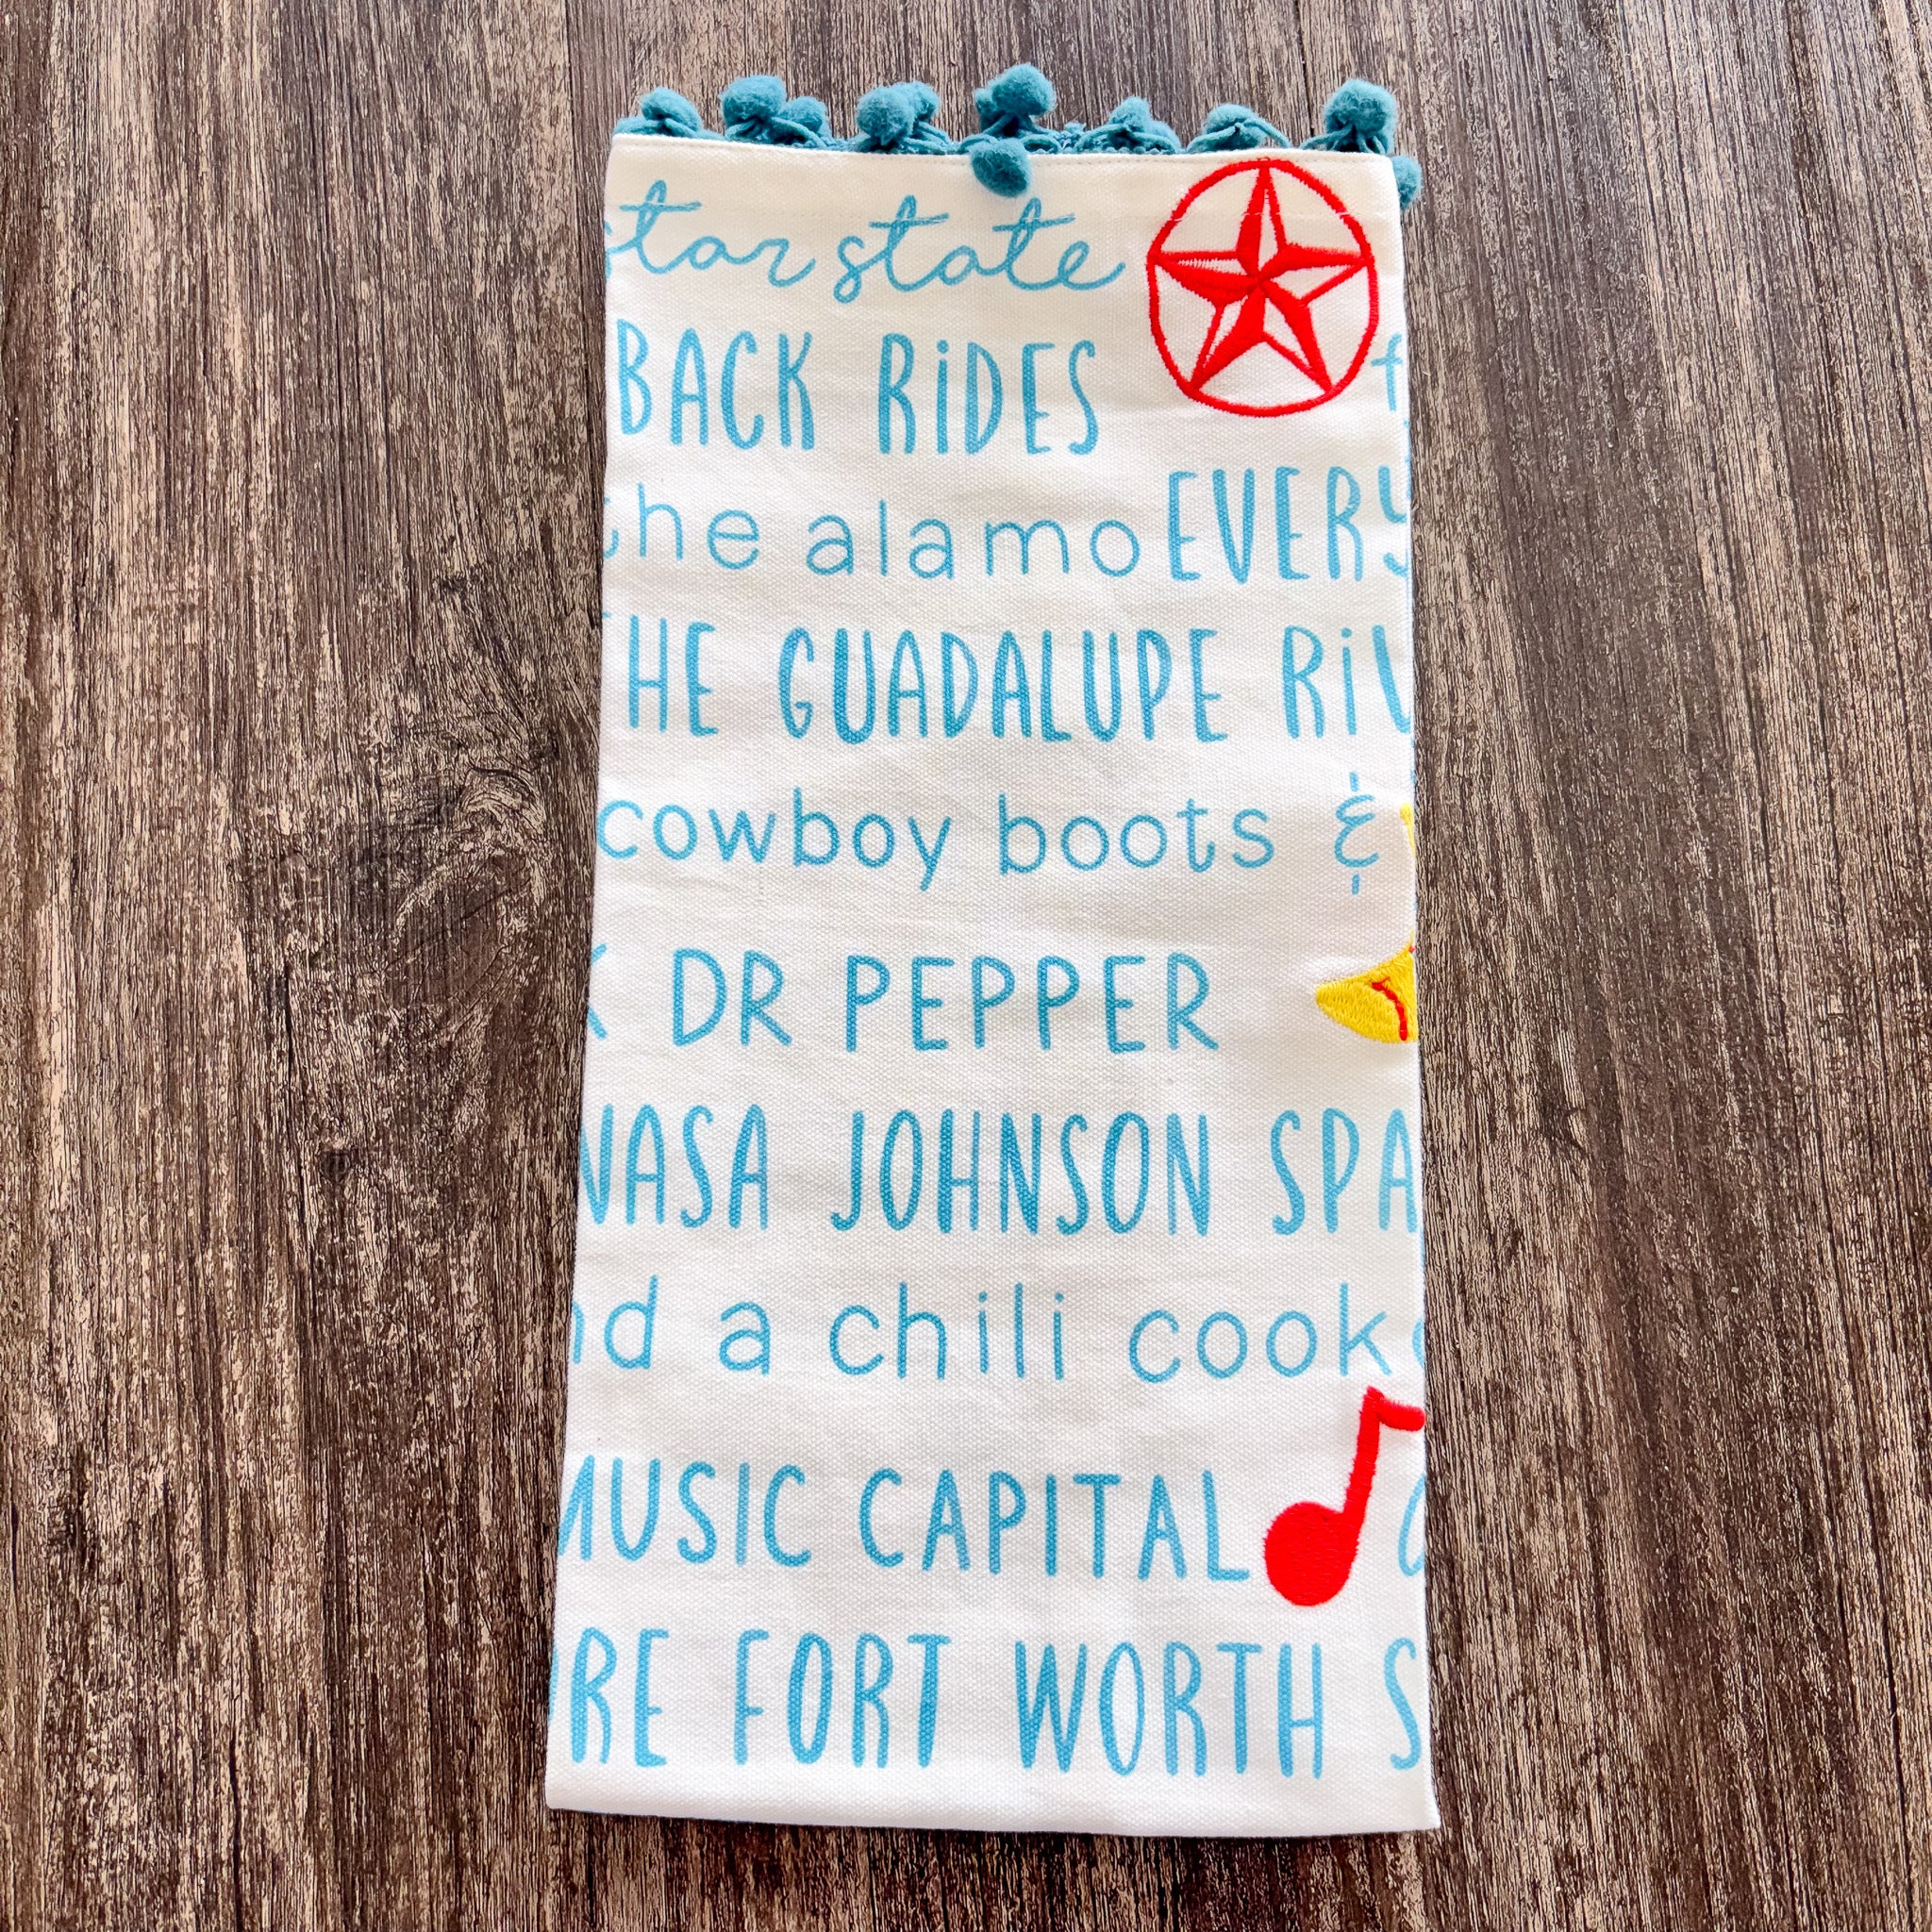 star state
BACK RiDES
the alamo EVERY
THE GUADALUPE RiV
cowboy boots &
K DR PEPPER
NASA JOHNSON SPA
nd a chili cook
MUSIC CAPITAL
RE FORT WORTH S